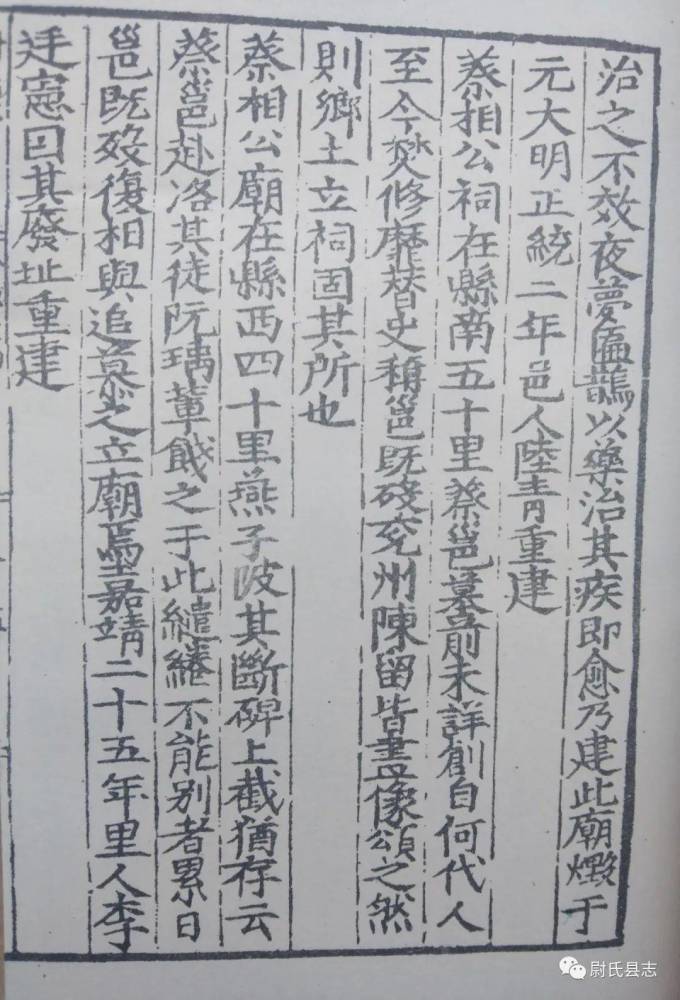 治之不效夜夢匾鵲以藥治其疾即愈乃建此廟燬于
元大明正統二年邑人陸青重建
蔡相公祠在縣南五十里蔡邕墓前未詳創自何代人
至今焚修靡替史稱邕既殁兖州陳留皆畫像頌之然
則鄉土立祠固其所也
蔡相公廟在縣西四十里燕子陂其斷碑上截猶存云
蔡邕赴洛其徒阮瑀軰餞之于此繾綣不能别者累日
邕既殁復相與追慕之立廟焉嘉靖二十五年里人李
廷憲因其廢址重建
尉氏县志